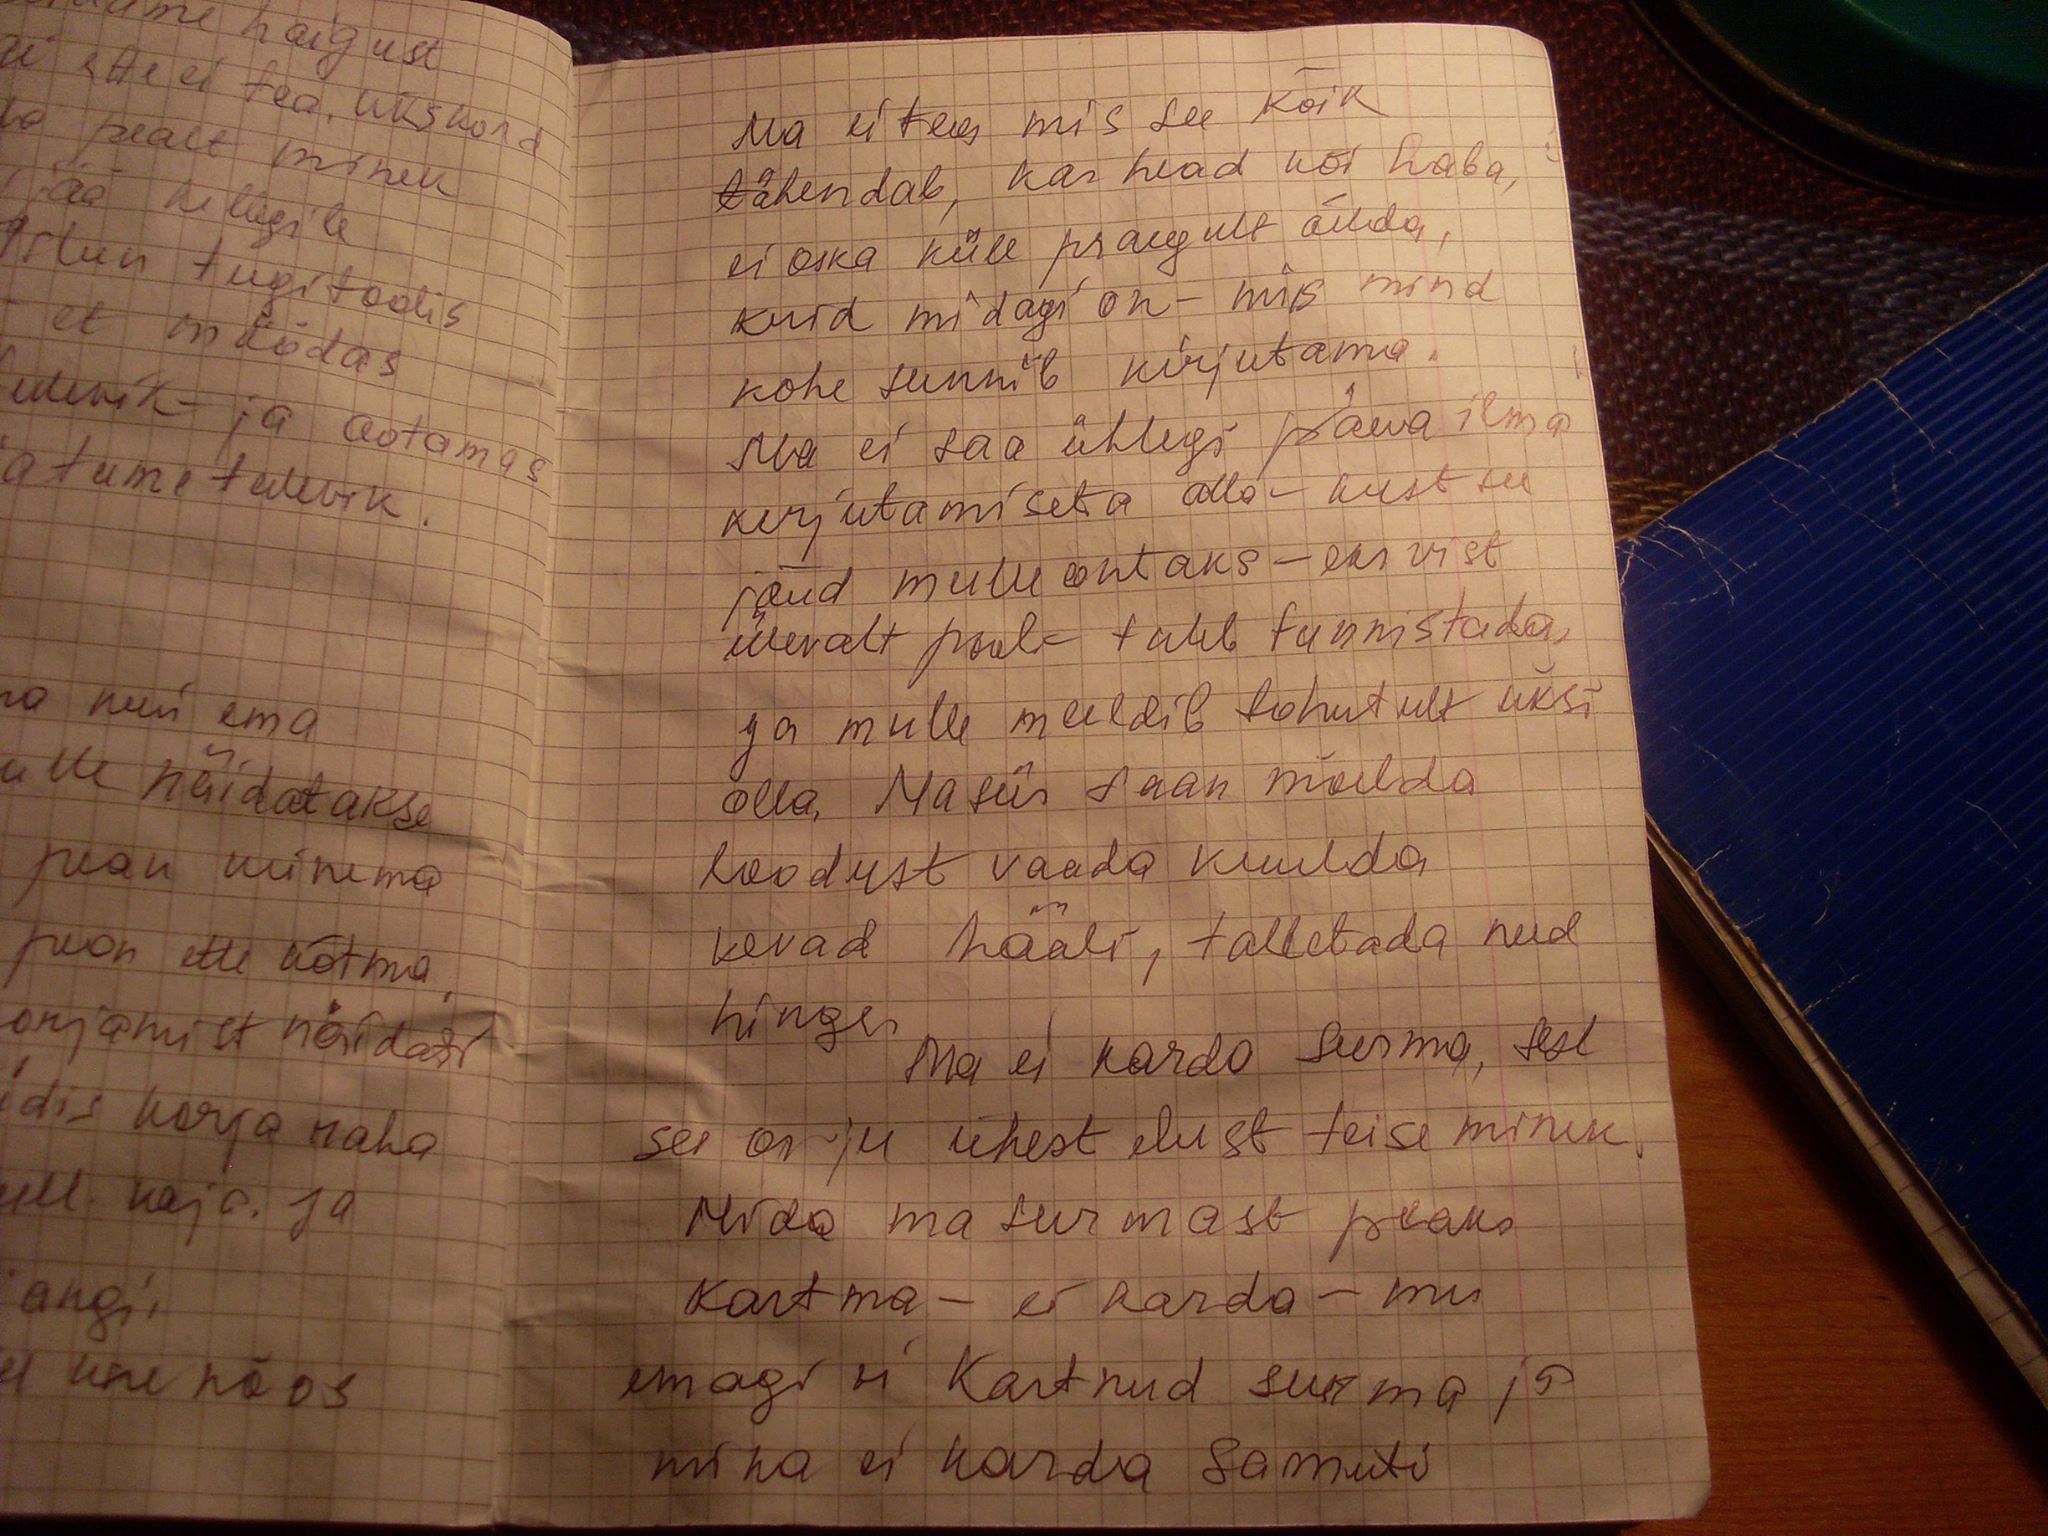 haigust
ette ei tea. ükskord
pealt minek
jää kellegile
tugitoolis
et möödas
ja ootamas
tume tulevik.
kui ema
näidatakse
pean minema
pean ette võtma,
näidati
korja raha
maja. ja
unenäos
Ma ei tea mis see kõik
tähendab, kas head või halba,
ei oska küll praegult öelda,
kuid midagi on - mis mind
kohe sunnib kirjutama.
Ma ei saa ühlegi päeva ilma
kirjutamiseta olla - kust see
jõud mulle antaks - eks vist
ülevalt poolt tuleb tunnistada,
ja mulle meeldib tohutult üksi
olla. Ma siis saan mõelda
loodust vaada kuulda
kevad hääli, talletada need
hinge.
Ma ei karda surma, sest
see on ju ühest elust teise minek.
Mida ma surmast peaks
kartma - ei karda - mu
emagi ei kartnud surma ja
mina ei karda samuti